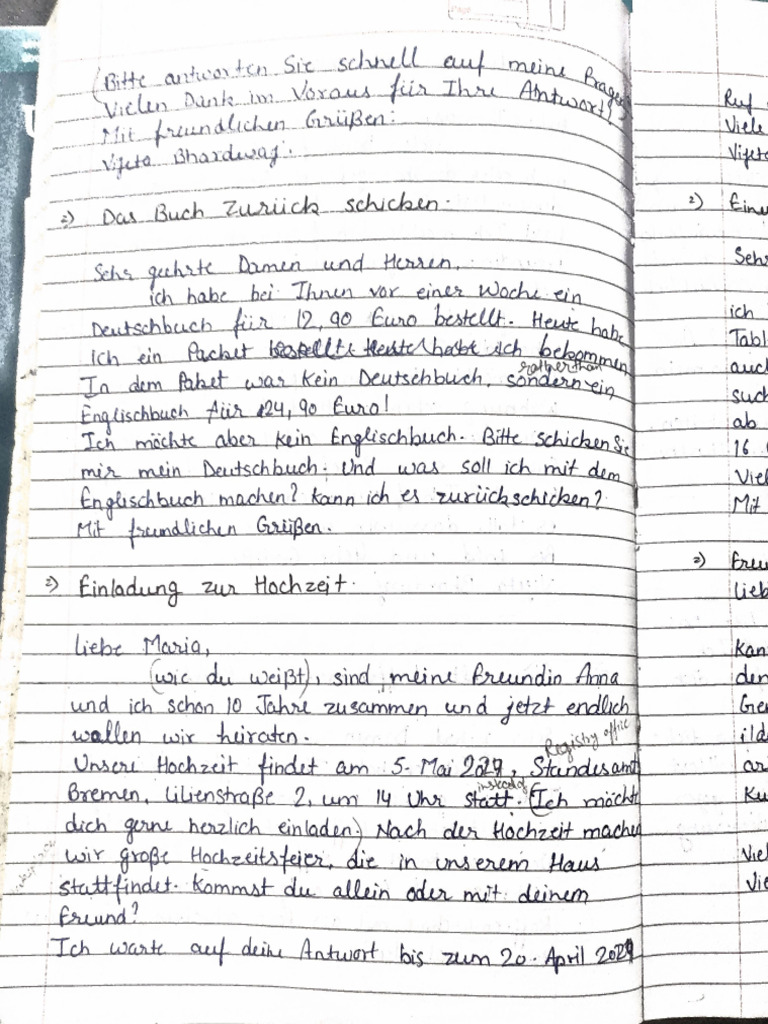 (Bitte antworten Sie schnell auf meine Fragen,
Vielen Dank im Voraus für Ihre Antwort!
Mit freundlichen Grüßen:
Vijeta Bhardwaj.
2) Das Buch zurück schicken.
Sehr geehrte Damen und Herren,
ich habe bei Ihnen vor einer Woche ein
Deutschbuch für 12,90 Euro bestellt. Heute habe
ich ein Packet bekommen
In dem Paket war kein Deutschbuch, sondern ein
rather than
Englischbuch für 24,90 Euro!
Ich möchte aber kein Englischbuch. Bitte schicken Sie
mir mein Deutschbuch. Und was soll ich mit dem
Englischbuch machen? Kann ich es zurückschicken?
Mit freundlichen Grüßen.
2) Einladung zur Hochzeit.
Liebe Maria,
(wie du weißt), sind meine Freundin Anna
und ich schon 10 Jahre zusammen und jetzt endlich
wollen wir heiraten.
Registry office
Unsere Hochzeit findet am 5. Mai, Standesamt
instead of
Bremen, Lilienstraße 2, um 14 Uhr statt. (Ich möchte
dich gerne herzlich einladen.) Nach der Hochzeit machen
wir große Hochzeitsfeier, die in unserem Haus
stattfindet. Kommst du allein oder mit deinem
Freund?
Ich warte auf deine Antwort bis zum 20. April
Ruf
Viele
Vijeta
2)
Sehr
ich
Tabl
auch
such
ab
16
Viel
Mit
2) Freu
Lieb
Kan
den
Ge
ild
ar
Ku
Viel
Vie